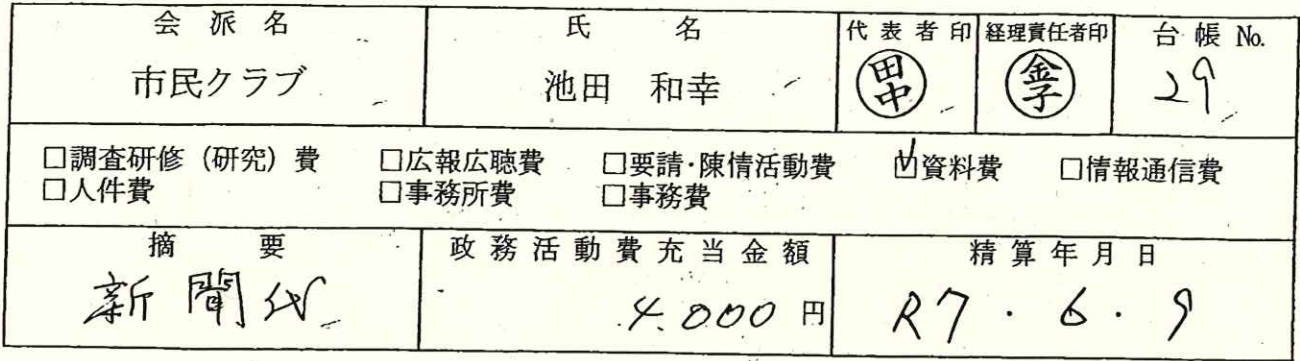 会派名 氏名 代表者印 経理責任者印 台帳No.
市民クラブ 池田 和幸 田中 金子 29
□調査研修(研究)費 □広報広聴費 □要請・陳情活動費 ☑資料費 □情報通信費
□人件費 □事務所費 □事務費
摘要 政務活動費充当金額 精算年月日
新聞代 4.000円 R7・6・9